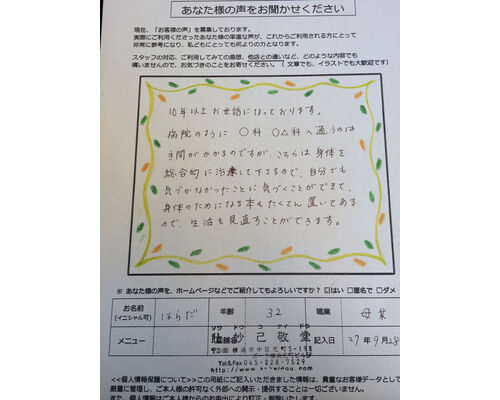 あなた様の声をお聞かせください
現在、「お客様の声」を募集しております。
実際にご利用くださったあなた様の率直な声が、これからご利用される方にとって
非常に参考になり、私どもにとっても何よりの力となります。
スタッフの対応、ご利用してみての感想、他店との違いなど、どのような内容でも
構いませんので、お気づきのことをお寄せください。(文章でも、イラストでも大歓迎です)
10年以上お世話になっております。
病院のように、○科、○△科へ通うのは
手間がかかるのですが、こちらは身体を
総合的に治療して下さるので、自分でも
気づかなかったことに気づくことができて、
身体のためになる本もたくさん置いてある
ので、生活も見直すことができます。
※ あなた様の声を、ホームページなどでご紹介してもよろしいですか? ☑はい □匿名で □ダメ
お名前
(イニシャル可)
はらだ
年齢
32
職業
母業
メニュー
店舗名
妙己敬堂
横浜市中区元町5-198
Tel&Fax 045-228-7529
27年9月28
<<個人情報保護について>>この用紙にご記入いただきました情報は、貴重なお客様データとして
厳重に管理し、ご本人様の許可なく外部への開示・提供することは一切ございません。
また、個人情報について、ご本人様からのお申出により訂正・削除いたします。